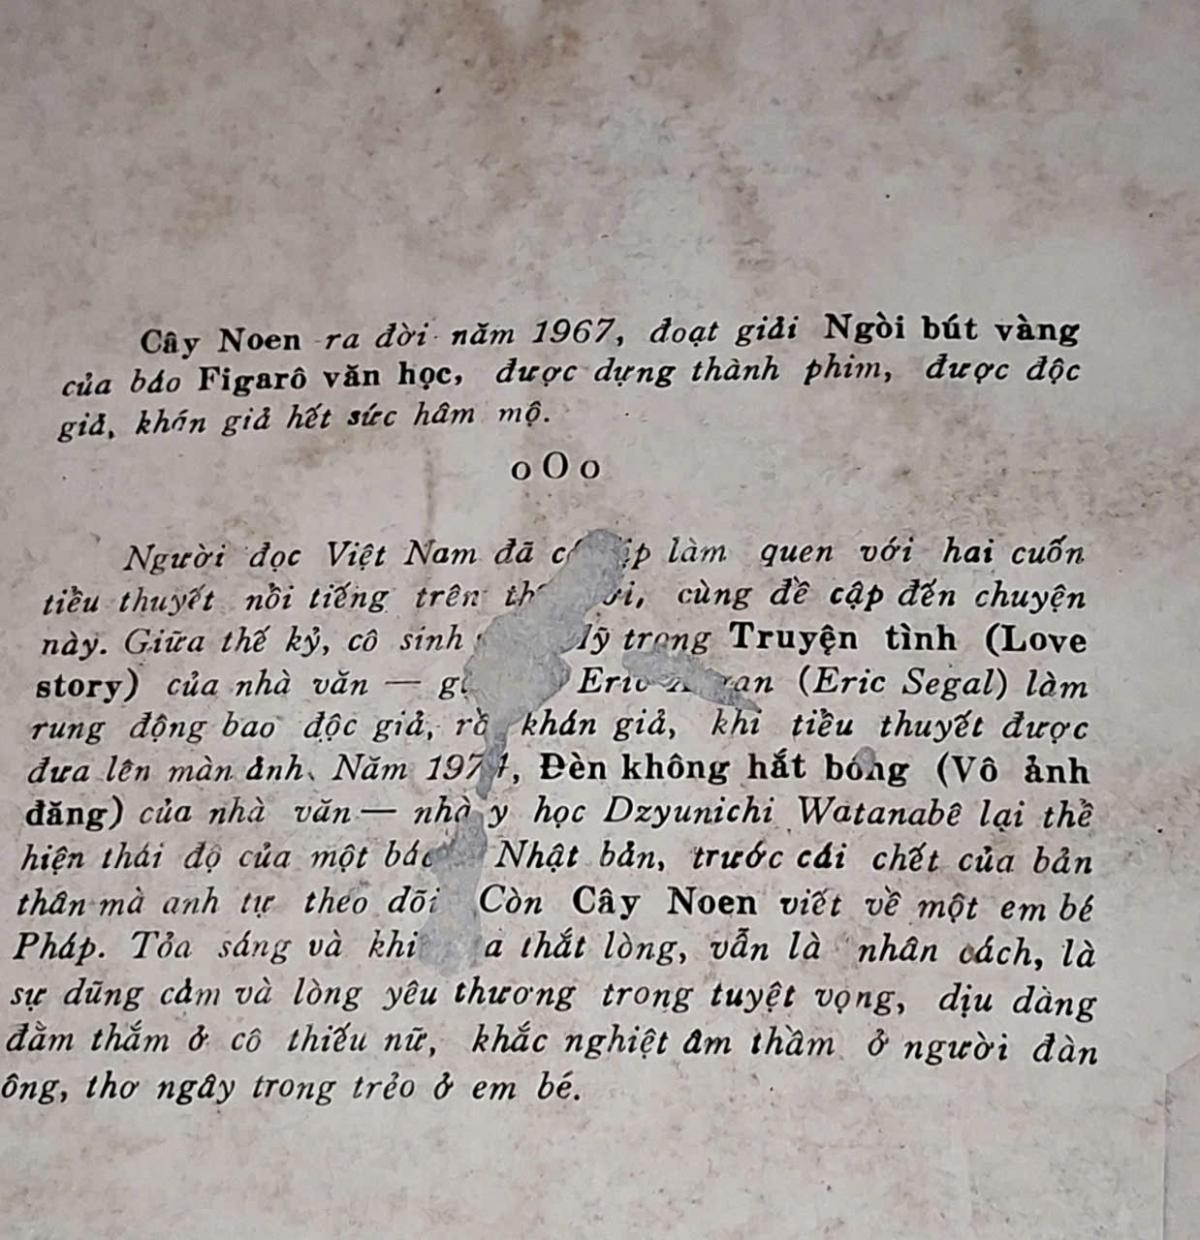 Cây Noen ra đời năm 1967, đoạt giải Ngòi bút vàng
của báo Figarô văn học, được dựng thành phim, được độc
giả, khán giả hết sức hâm mộ.
oOo
Người đọc Việt Nam đã làm quen với hai cuốn
tiểu thuyết nổi tiếng trên cùng đề cập đến chuyện
này. Giữa thế kỷ, cô sinh trong Truyện tình (Love
story) của nhà văn — Eric (Eric Segal) làm
rung động bao độc giả, rồi khán giả, khi tiểu thuyết được
đưa lên màn ảnh. Năm Đèn không hắt bóng (Vô ảnh
đăng) của nhà văn — nhà y học Dzyunichi Watanabê lại thể
hiện thái độ của một Nhật bản, trước cái chết của bản
thân mà anh tự theo dõi Còn Cây Noen viết về một em bé
Pháp. Tỏa sáng và khi thắt lòng, vẫn là nhân cách, là
sự dũng cảm và lòng yêu thương trong tuyệt vọng, dịu dàng
đằm thắm ở cô thiếu nữ, khắc nghiệt âm thầm ở người đàn
ông, thơ ngây trong trẻo ở em bé.